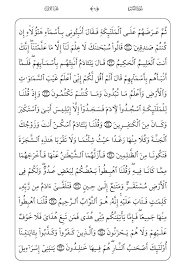 ثُمَّ عَرَضَهُمْ عَلَى الْمَلَٰٓئِكَةِ فَقَالَ أَنۢبِـُٔونِى بِأَسْمَآءِ هَٰٓؤُلَآءِ إِن
كُنتُمْ صَٰدِقِينَ قَالُوا۟ سُبْحَٰنَكَ لَا عِلْمَ لَنَآ إِلَّا مَا عَلَّمْتَنَآ إِنَّكَ
أَنتَ الْعَلِيمُ الْحَكِيمُ قَالَ يَٰٓـَٔادَمُ أَنۢبِئْهُم بِأَسْمَآئِهِمْ فَلَمَّآ
أَنۢبَأَهُم بِأَسْمَآئِهِمْ قَالَ أَلَمْ أَقُل لَّكُمْ إِنِّىٓ أَعْلَمُ غَيْبَ السَّمَٰوَٰتِ
وَالْأَرْضِ وَأَعْلَمُ مَا تُبْدُونَ وَمَا كُنتُمْ تَكْتُمُونَ وَإِذْ قُلْنَا
لِلْمَلَٰٓئِكَةِ اسْجُدُوا۟ لِـَٔادَمَ فَسَجَدُوٓا۟ إِلَّآ إِبْلِيسَ أَبَىٰ وَاسْتَكْبَرَ
وَكَانَ مِنَ الْكَٰفِرِينَ وَقُلْنَا يَٰٓـَٔادَمُ اسْكُنْ أَنتَ وَزَوْجُكَ
الْجَنَّةَ وَكُلَا مِنْهَا رَغَدًا حَيْثُ شِئْتُمَا وَلَا تَقْرَبَا هَٰذِهِ الشَّجَرَةَ
فَتَكُونَا مِنَ الظَّٰلِمِينَ فَأَزَلَّهُمَا الشَّيْطَٰنُ عَنْهَا فَأَخْرَجَهُمَا
مِمَّا كَانَا فِيهِ وَقُلْنَا اهْبِطُوا۟ بَعْضُكُمْ لِبَعْضٍ عَدُوٌّ وَلَكُمْ فِى
الْأَرْضِ مُسْتَقَرٌّ وَمَتَٰعٌ إِلَىٰ حِينٍ فَتَلَقَّىٰٓ ءَادَمُ مِن رَّبِّهِۦ
كَلِمَٰتٍ فَتَابَ عَلَيْهِ إِنَّهُۥ هُوَ التَّوَّابُ الرَّحِيمُ قُلْنَا اهْبِطُوا۟
مِنْهَا جَمِيعًا فَإِمَّا يَأْتِيَنَّكُم مِّنِّى هُدًى فَمَن تَبِعَ هُدَاىَ فَلَا خَوْفٌ
عَلَيْهِمْ وَلَا هُمْ يَحْزَنُونَ وَالَّذِينَ كَفَرُوا۟ وَكَذَّبُوا۟ بِـَٔايَٰتِنَآ
أُو۟لَٰٓئِكَ أَصْحَٰبُ النَّارِ هُمْ فِيهَا خَٰلِدُونَ يَٰبَنِىٓ إِسْرَٰٓءِيلَ